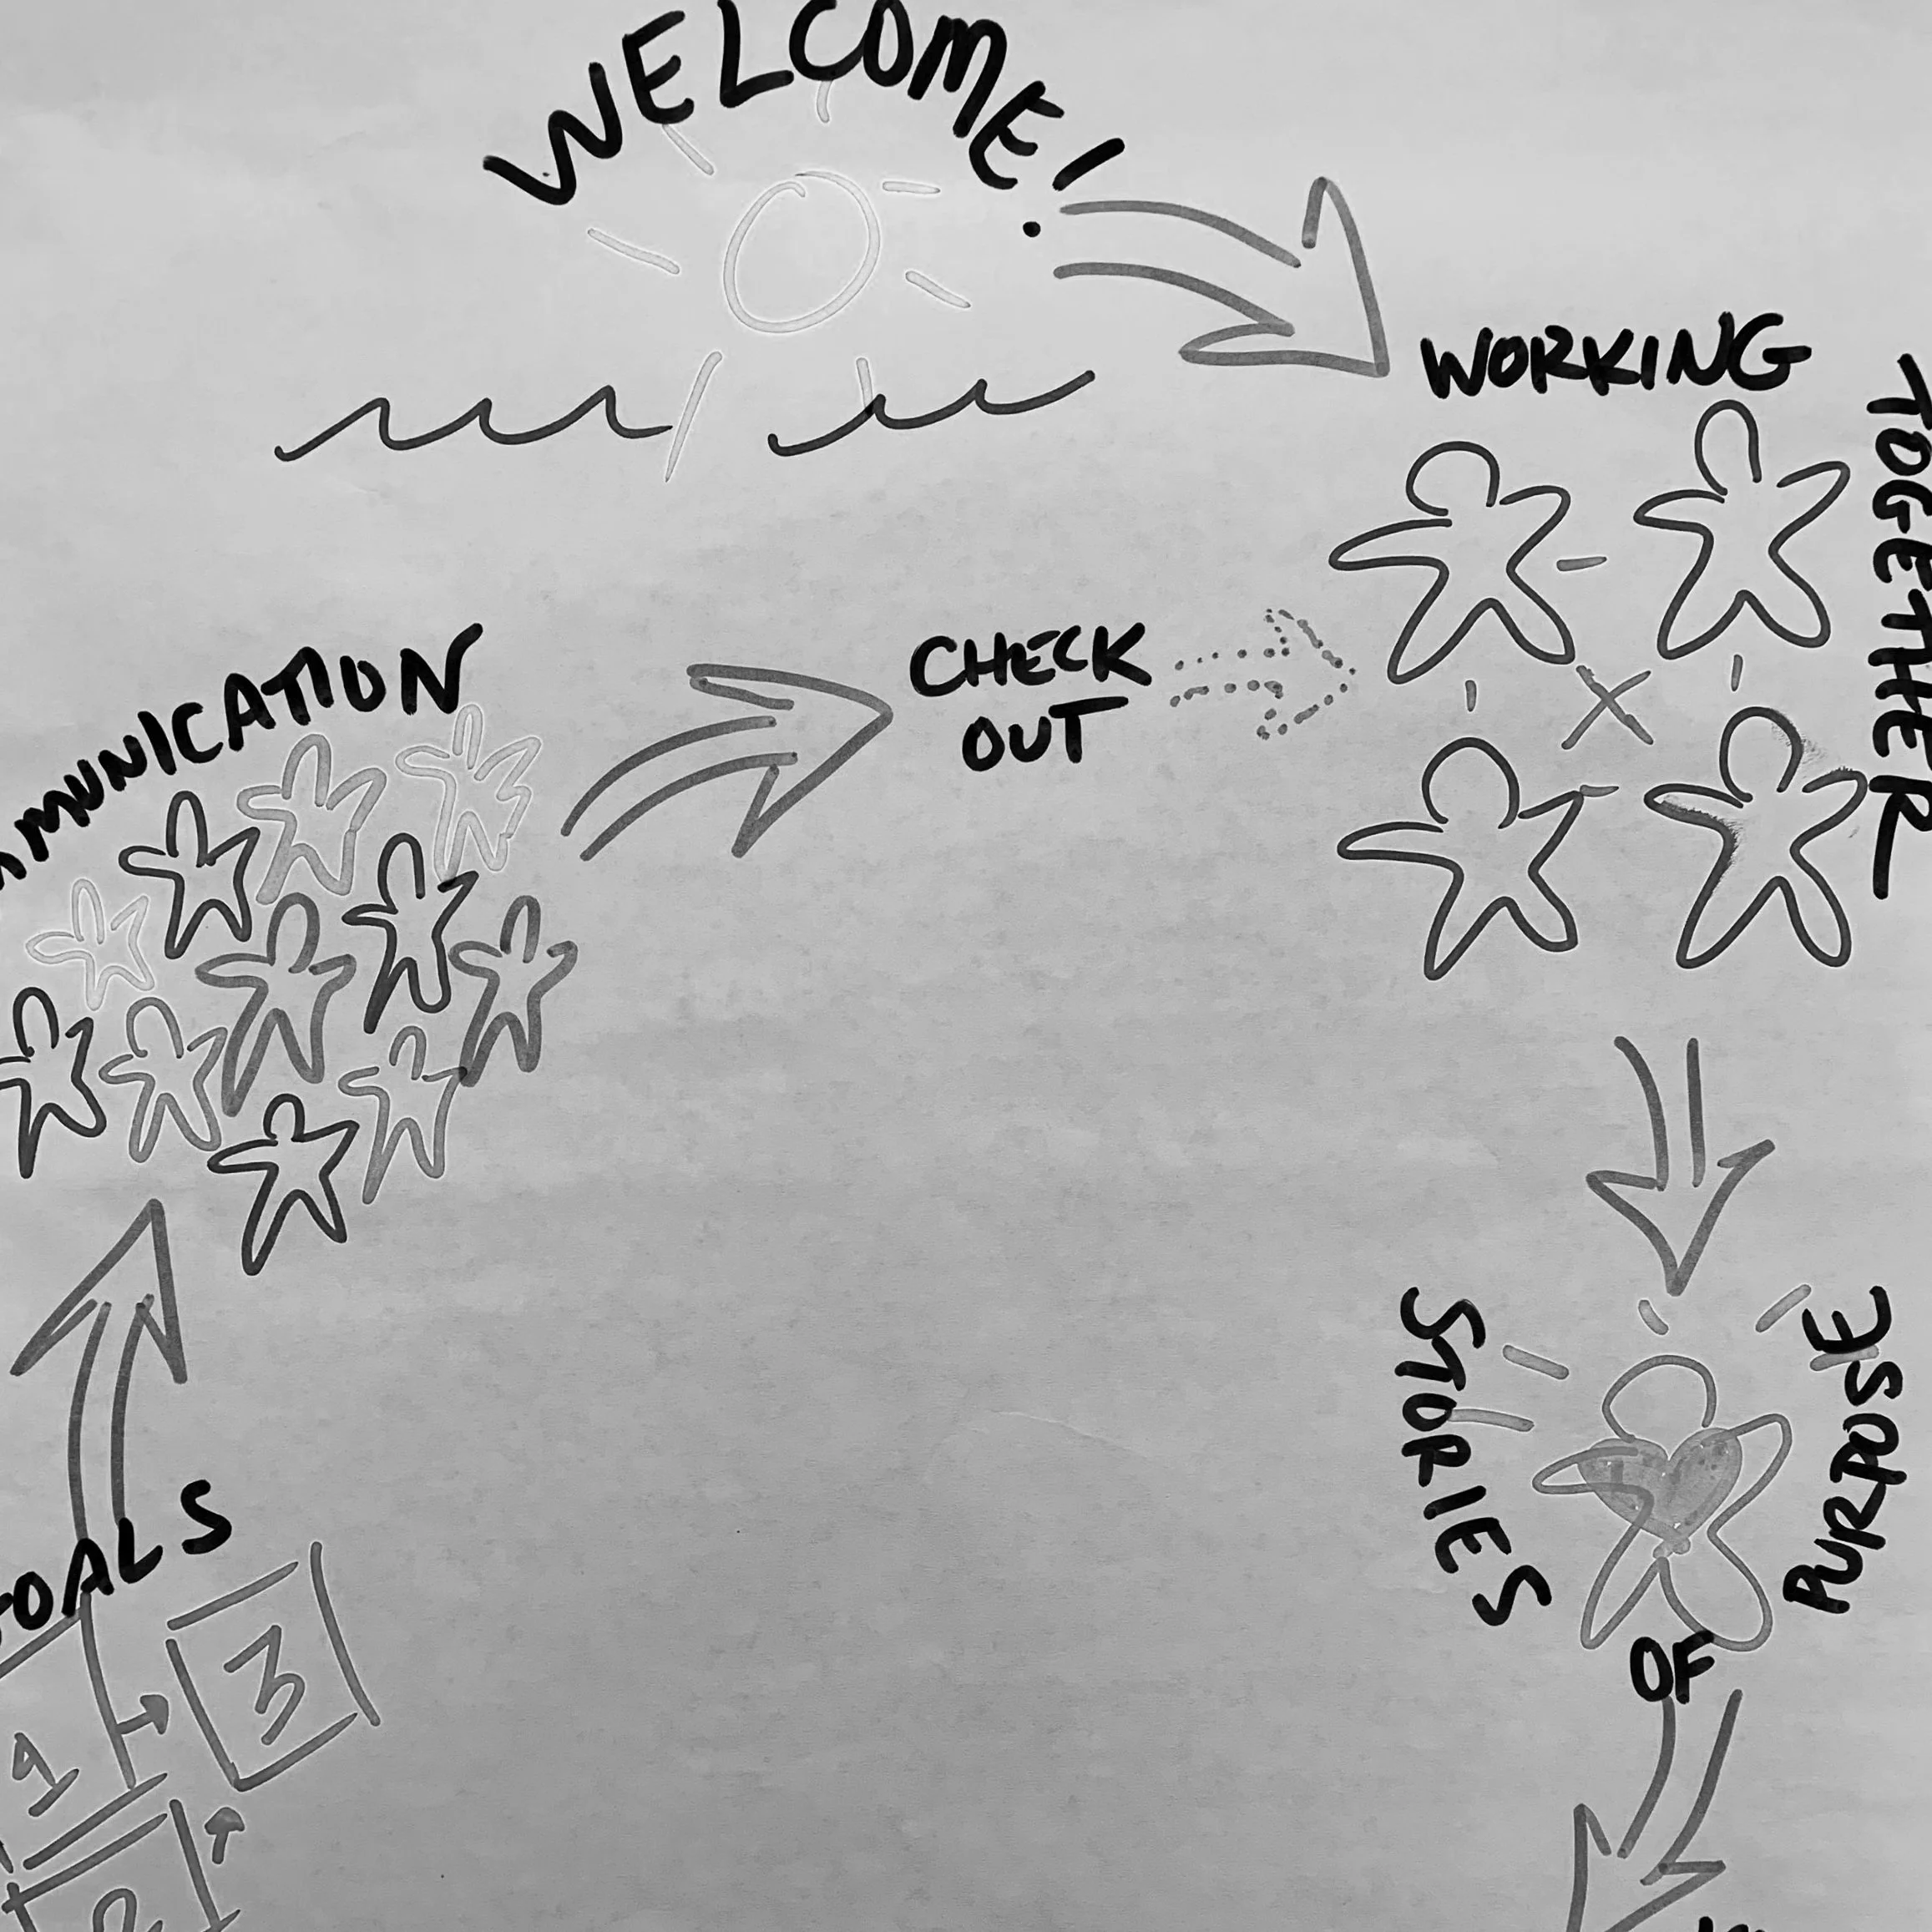 WELCOME!
WORKING
TOGETHER
CHECK
OUT
MMUNICATION
STORIES
OF
PURPOSE
OALS
1
3
2